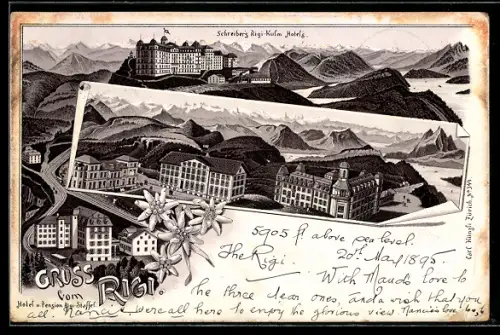 Schreiber's Rigi-Kulm Hotels.
GRUSS
vom
RIGI.
Hotel u. Pension Rigi-Staffel.
Carl Künzli Zürich. No 341
5905 ft above sea level.
The Rigi. 20th May 1895.
With Maude love to
the three dear ones, and wish that you
all were all here to enjoy the glorious view